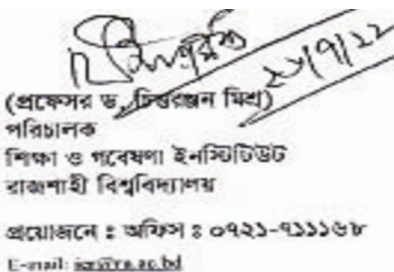 ২৮/৭/২২
(প্রফেসর ড. চিত্তরঞ্জন মিশ্র)
পরিচালক
শিক্ষা ও গবেষণা ইনস্টিটিউট
রাজশাহী বিশ্ববিদ্যালয়
প্রয়োজনে ঃ অফিস ঃ ০৭২১-৭১১১৬৮
E-mail: ier@ru.ac.bd